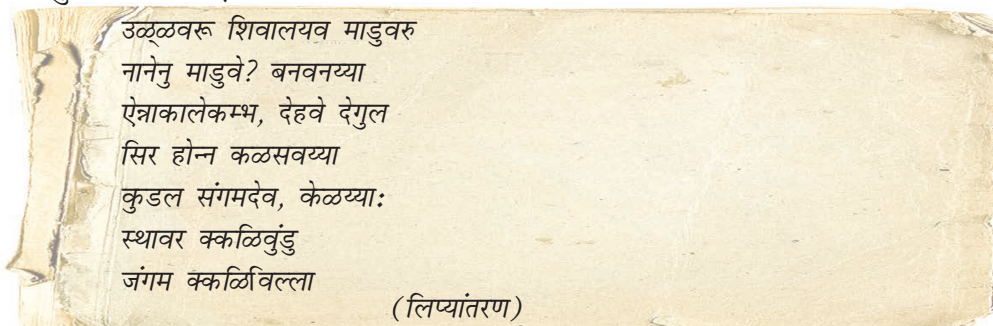 उळ्ळवरू शिवालयव माडुवरु
नानेनु माडुवे? बनवनय्या
ऐन्नाकालेकम्भ, देहवे देगुल
सिर होन्न कळसवय्या
कुडल संगमदेव, केळय्या:
स्थावर क्कळिवुंडु
जंगम क्कळिविल्ला
(लिप्यांतरण)